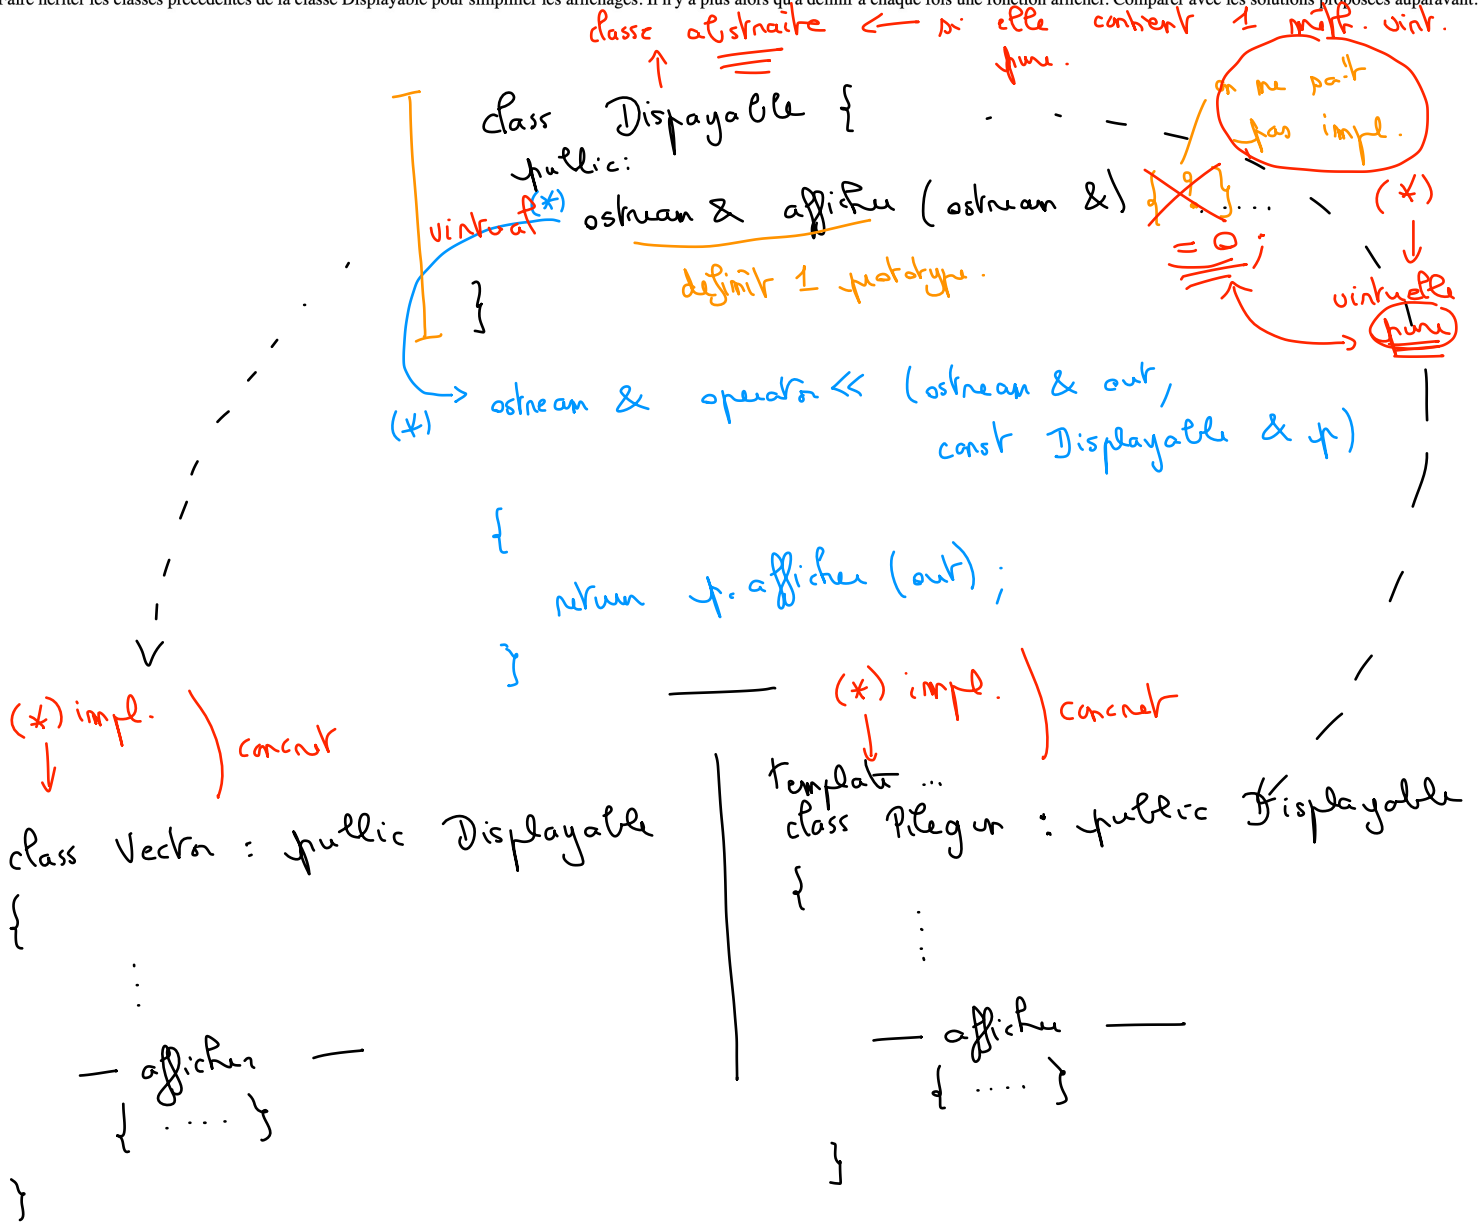 Faire hériter les classes précédentes de la classe Displayable pour simplifier les affichages. Il n'y a plus alors qu'à définir à chaque fois une fonction afficher. Comparer avec les solutions proposées auparavant.
classe abstraite ← si elle contient 1 méth. virt.
pure.
on ne sait
pas impl.
class Dispayable {
public:
virtual (*) ostream & afficher (ostream &) { ? } ...
= 0 ;
(*)
virtuelle
pure
définit 1 prototype.
}
(*) ostream & operator << (ostream & out,
const Displayable & p)
{
return p.afficher (out) ;
}
(*) impl.
concret
class Vector : public Displayable
{
— afficher —
{ .... }
}
(*) impl.
concret
template ...
class Pilegen : public Displayable
{
— afficher —
{ .... }
}